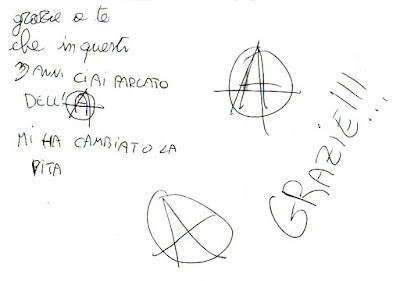 grazie a te
che in questi
3 ANNI CI AI PARLATO
DELL'Ⓐ
MI HA CAMBIATO LA
VITA
Ⓐ
GRAZIE!!!...
Ⓐ